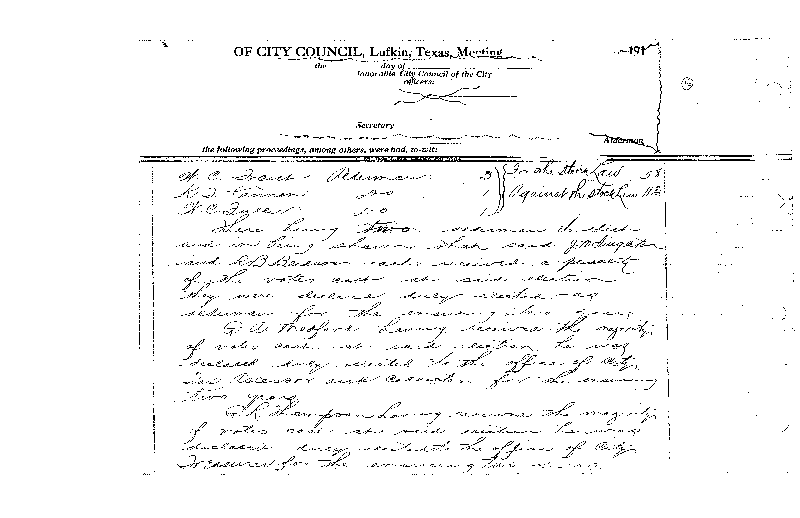 OF CITY COUNCIL, Lufkin, Texas, Meeting 191
the day of
honorable City Council of the City
officers:
Secretary
Alderman
the following proceedings, among others, were had, to-wit:
W. C. Alderman 3 For the Stock Law 58
do 1 Against the Stock Law 112
W C Tyler do 1
There being two aldermen to elect
and it being shown that said
and received a plurality
of the votes cast at said election
they were declared duly elected as
aldermen for the ensuing two years
G. A. having received the majority
of votes cast at said election he was
declared duly elected to the office of City
Tax Assessor and Collector for the ensuing
two years
Thompson having received the majority
of votes cast at said election he was
declared duly elected to the office of City
Treasurer for the ensuing two years